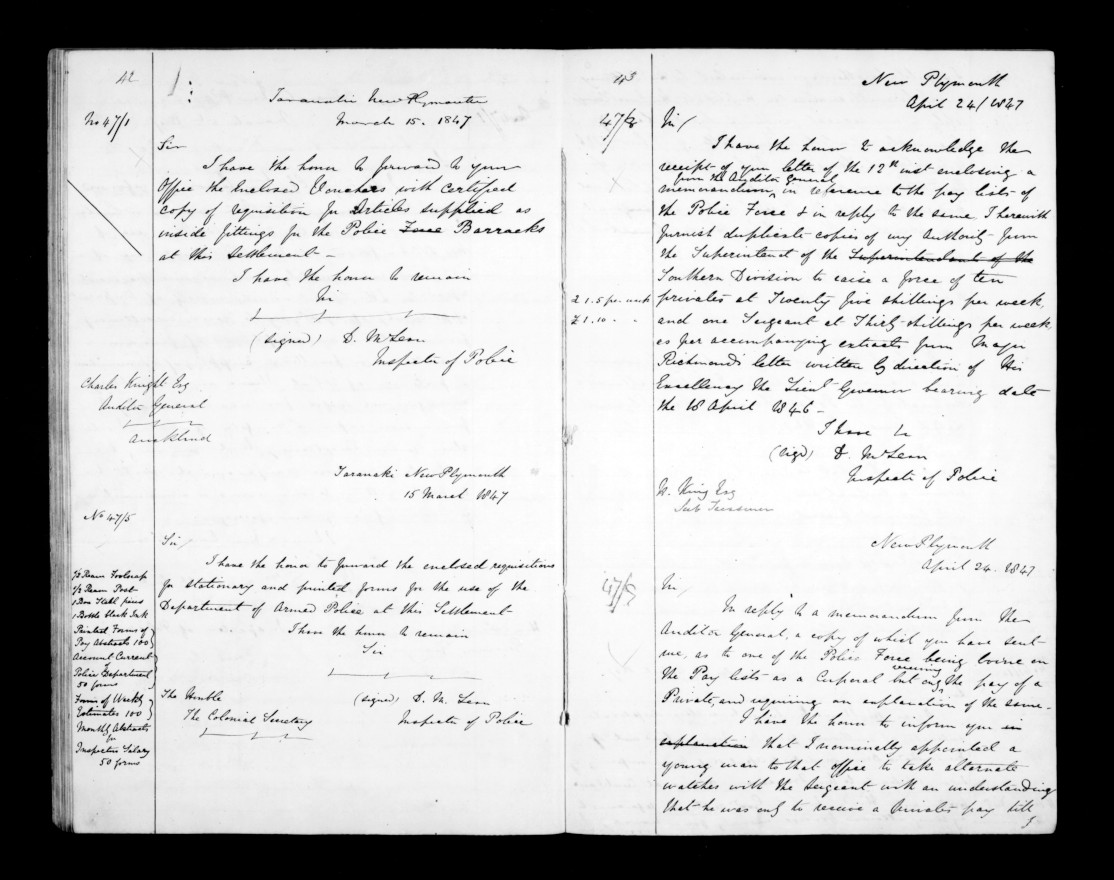 42
Taranaki New Plymouth
March 15. 1847
No 47/1
Sir
I have the honor to forward to your
Office the enclosed Vouchers with certified
copy of requisition for Articles supplied as
inside fittings for the Police Force Barracks
at this Settlement -
I have the honor to remain
Sir
(signed) D. McLean
Inspector of Police
Charles Knight Esq
Auditor General
Auckland
Taranaki New Plymouth
15 March 1847
No 47/5
Sir/
I have the honor to forward the enclosed requisitions
for stationary and printed forms for the use of the
Department of Armed Police at this Settlement
I have the honor to remain
Sir
(signed) D. McLean
Inspector of Police
The Honble
The Colonial Secretary
1/2 Ream Foolscap
1/2 Ream Post
1 Box Steel pens
1 Bottle black Ink
Printed Forms of
Pay Abstracts 100
Account Current
Police Department
50 forms
Forms of Weekly
Estimates 100
Monthly Abstracts
for
Inspectors Salary
50 forms
43
New Plymouth
April 24/1847
47/8
Sir/
I have the honor to acknowledge the
receipt of your letter of the 12th inst enclosing a
memorandum from the Auditor General in reference to the pay lists of
the Police Force & in reply to the same I herewith
furnish duplicate copies of my Authority from
the Superintendent of the Superintendant of the
Southern Division to raise a force of ten
£ 1.5 per week
privates at Twenty five shillings per week
£ 1.10 - "
and one Sergeant at Thirty shillings per week
as per accompanying extracts from Major
Richmond's letter written by direction of His
Excellency the Lieut Governor bearing date
the 18 April 1846 -
I have &c
(sigd) D. McLean
Inspector of Police
W. King Esq
Sub Treasurer
New Plymouth
April 24. 1847
47/9
Sir/
In reply to a memorandum from the
Auditor General, a copy of which you have sent
me, as to one of the Police Force being borne on
the Pay lists as a Corporal but only receiving the pay of a
Private, and requiring an explanation of the same -
I have the honor to inform you in
explanation that I nominally appointed a
young man to that office to take alternate
watches with the Sergeant with an understanding
that he was only to receive a Privates pay till